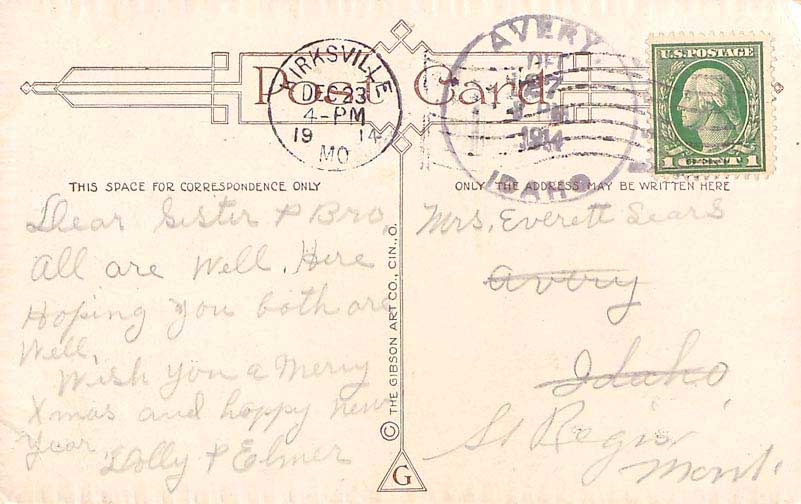 Post Card
KIRKSVILLE
DEC 23
4-PM
1914
MO.
AVERY,
DEC
27
1914
IDAHO
U.S. POSTAGE
1 CENT 1
THIS SPACE FOR CORRESPONDENCE ONLY
ONLY THE ADDRESS MAY BE WRITTEN HERE
Dear Sister & Bro
All are Well. Here
Hoping you both are
Well,
Wish you a Merry
Xmas and happy new
Year
Dolly & Elmer
© THE GIBSON ART CO., CIN., O.
G
Mrs, Everett Sears
Avery
Idaho
St Regis
Mont.